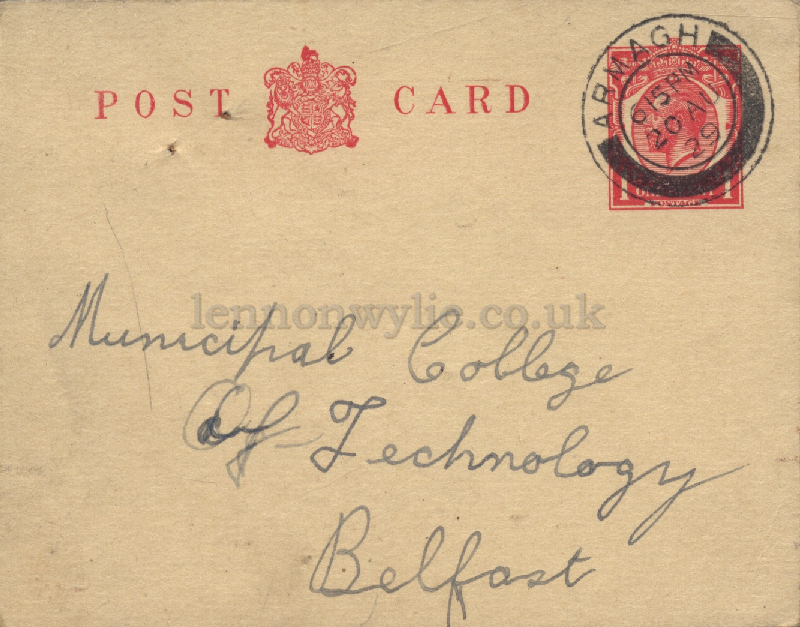 POST CARD
ARMAGH
615 PM
20 AU
29
1 1
lennonwylie.co.uk
Municipal College
Of Technology
Belfast